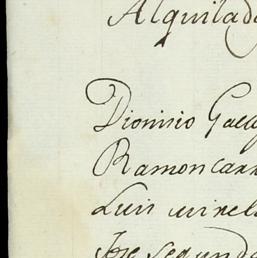 Alquilad
Dionisio Gall
Ramon carr
Luis
Jose segundo